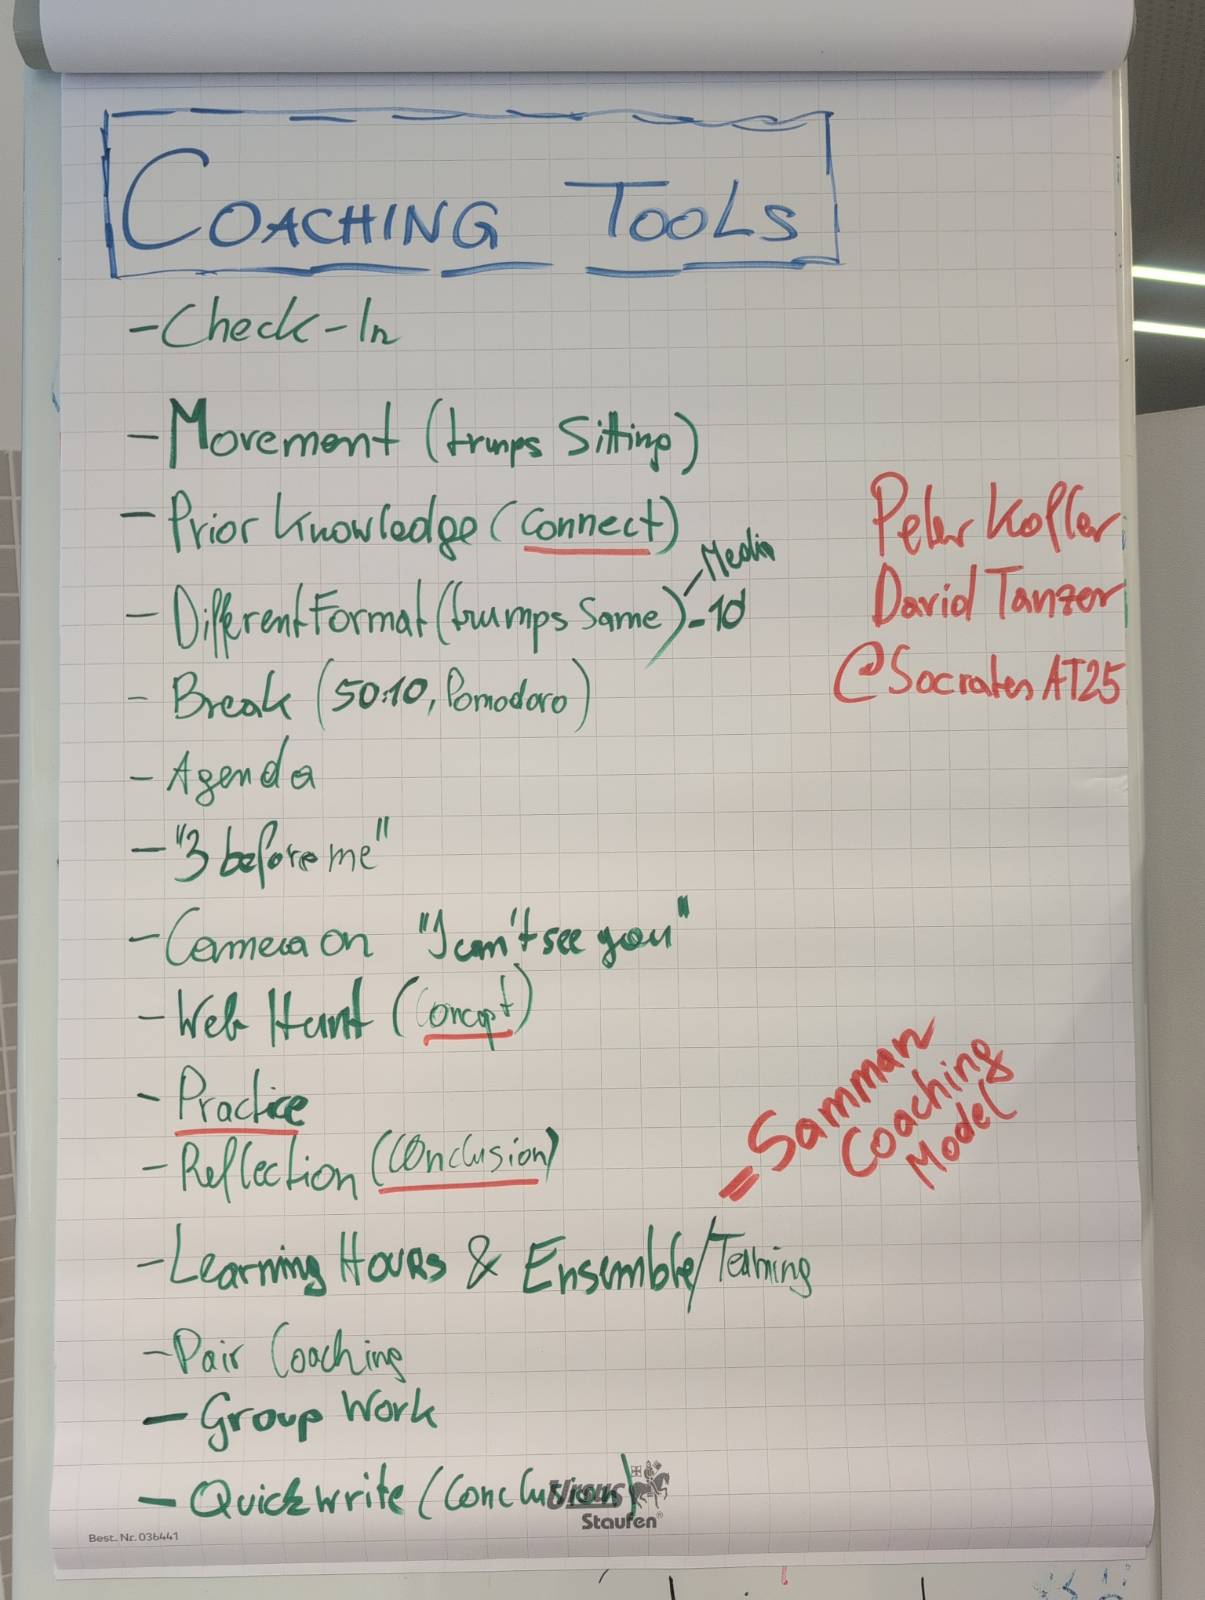 COACHING TOOLS
- Check-In
- Movement (trumps Sitting)
- Prior Knowledge (connect)
Media
- Different Format (trumps Same) - 10'
- Break (50:10, Pomodoro)
- Agenda
- "3 before me"
- Camera on "I can't see you"
- Web Hunt (Concept)
- Practice
- Reflection (Conclusion)
- Learning Hours & Ensemble/Teaming
- Pair Coaching
- Group Work
- Quickwrite (Conclusion)
Peter Kofler
David Tanzer
@Socrates AT25
= Samman
Coaching
Model
Staufen®
Best. Nr. 036441